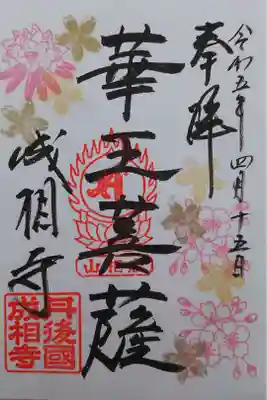 令和五年四月十五日
奉拝
華王菩薩
成相寺
丹後國
成相寺